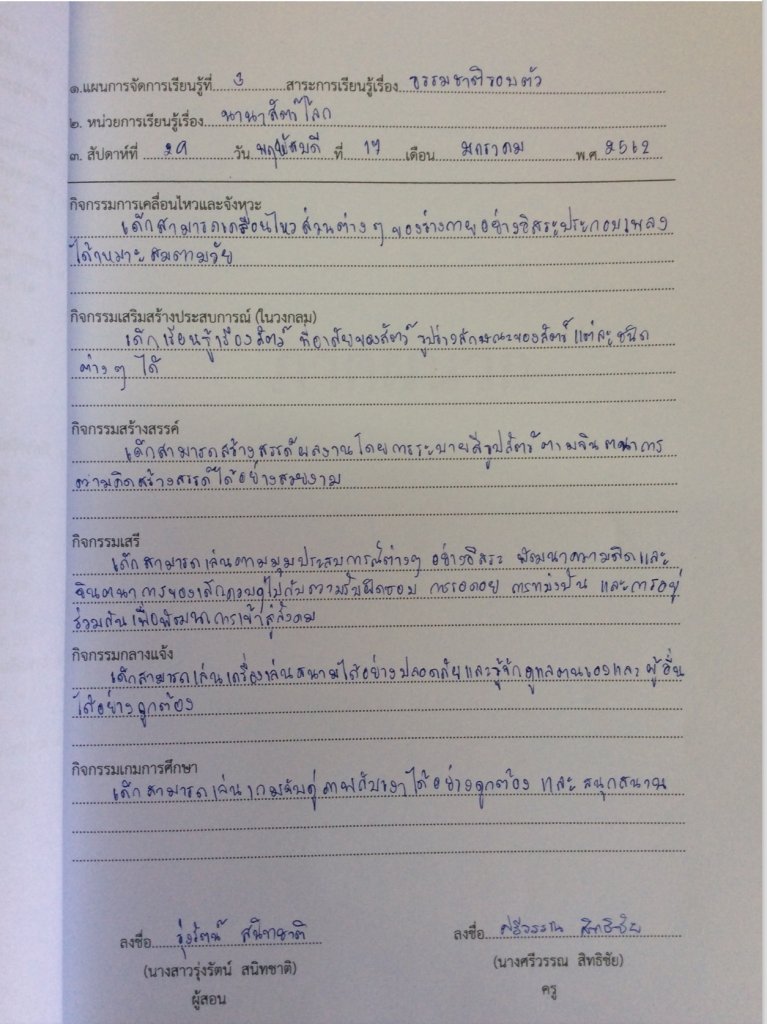 ๑.แผนการจัดการเรียนรู้ที่ 3 สาระการเรียนรู้เรื่อง ธรรมชาติรอบตัว
๒. หน่วยการเรียนรู้เรื่อง นานาสัตว์โลก
๓. สัปดาห์ที่ วัน พฤหัสบดี ที่ 17 เดือน มกราคม พ.ศ. 2562
กิจกรรมการเคลื่อนไหวและจังหวะ
เด็กสามารถเคลื่อนไหวส่วนต่าง ๆ ของร่างกายอย่างอิสระประกอบเพลง
ได้เหมาะสมตามวัย
กิจกรรมเสริมสร้างประสบการณ์ (ในวงกลม)
เด็กเรียนรู้เรื่องสัตว์ ที่อาศัยของสัตว์ รูปร่างลักษณะของสัตว์แต่ละชนิด
ต่าง ๆ ได้
กิจกรรมสร้างสรรค์
เด็กสามารถสร้างสรรค์ผลงานโดยการระบายสีรูปสัตว์ตามจินตนาการ
ความคิดสร้างสรรค์ได้อย่างสวยงาม
กิจกรรมเสรี
เด็กสามารถเล่นตามมุมประสบการณ์ต่างๆ อย่างอิสระ พัฒนาความคิดและ
จินตนาการของเด็กควบคู่ไปกับความรับผิดชอบ การรอคอย การแบ่งปัน และการอยู่
ร่วมกันเพื่อพัฒนาการเข้าสู่สังคม
กิจกรรมกลางแจ้ง
เด็กสามารถเล่นเครื่องเล่นสนามได้อย่างปลอดภัยและรู้จักดูแลตนเองและผู้อื่น
ได้อย่างถูกต้อง
กิจกรรมเกมการศึกษา
เด็กสามารถเล่นเกมจับคู่ภาพกับเงาได้อย่างถูกต้อง และสนุกสนาน
ลงชื่อ รุ่งรัตน์ สนิทชาติ ลงชื่อ ศรีวรรณ สิทธิชัย
(นางสาวรุ่งรัตน์ สนิทชาติ) (นางศรีวรรณ สิทธิชัย)
ผู้สอน ครู